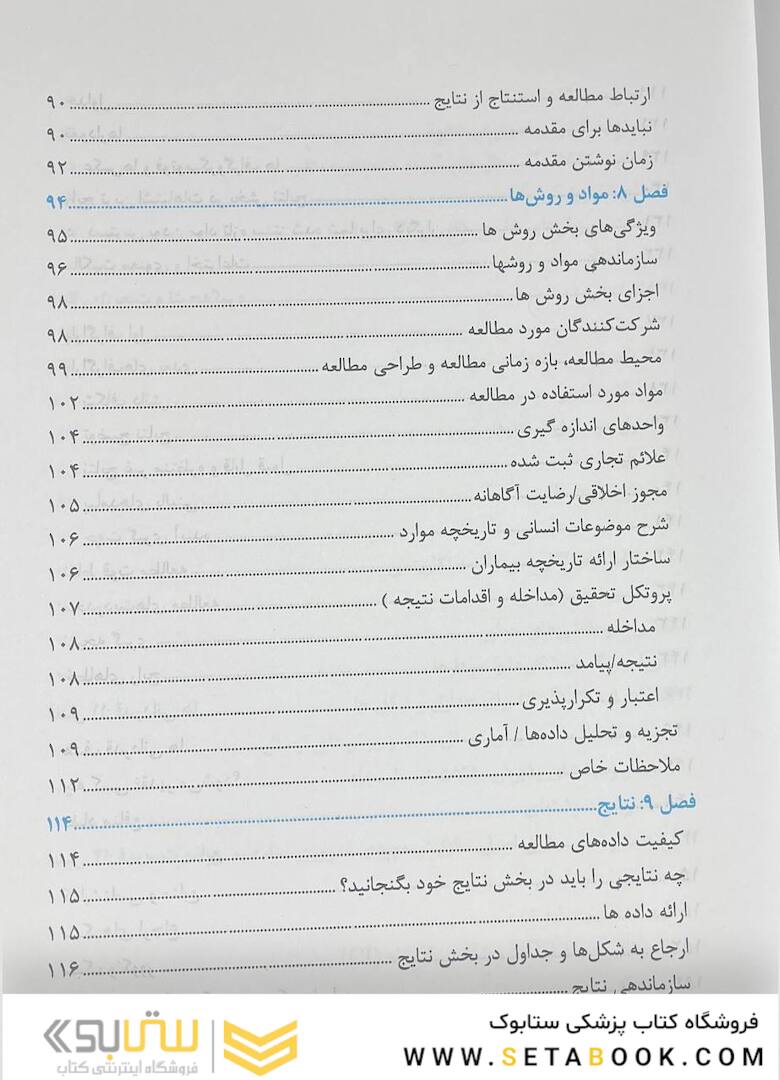 ارتباط مطالعه و استنتاج از نتایج ........ ۹۰
نبایدها برای مقدمه ........ ۹۰
زمان نوشتن مقدمه ........ ۹۲
فصل ۸: مواد و روش‌ها ........ ۹۴
ویژگی‌های بخش روش ها ........ ۹۵
سازماندهی مواد و روشها ........ ۹۶
اجزای بخش روش ها ........ ۹۸
شرکت‌کنندگان مورد مطالعه ........ ۹۸
محیط مطالعه، بازه زمانی مطالعه و طراحی مطالعه ........ ۹۹
مواد مورد استفاده در مطالعه ........ ۱۰۲
واحدهای اندازه گیری ........ ۱۰۴
علائم تجاری ثبت شده ........ ۱۰۴
مجوز اخلاقی/رضایت آگاهانه ........ ۱۰۵
شرح موضوعات انسانی و تاریخچه موارد ........ ۱۰۶
ساختار ارائه تاریخچه بیماران ........ ۱۰۶
پروتکل تحقیق (مداخله و اقدامات نتیجه ) ........ ۱۰۷
مداخله ........ ۱۰۸
نتیجه/پیامد ........ ۱۰۸
اعتبار و تکرارپذیری ........ ۱۰۹
تجزیه و تحلیل داده‌ها / آماری ........ ۱۰۹
ملاحظات خاص ........ ۱۱۲
فصل ۹: نتایج ........ ۱۱۴
کیفیت داده‌های مطالعه ........ ۱۱۴
چه نتایجی را باید در بخش نتایج خود بگنجانید؟ ........ ۱۱۵
ارائه داده ها ........ ۱۱۵
ارجاع به شکل‌ها و جداول در بخش نتایج ........ ۱۱۶
سازماندهی نتایج ........
فروشگاه کتاب پزشکی ستابوک
WWW.SETABOOK.COM
ستابوک
فروشگاه اینترنتی کتاب